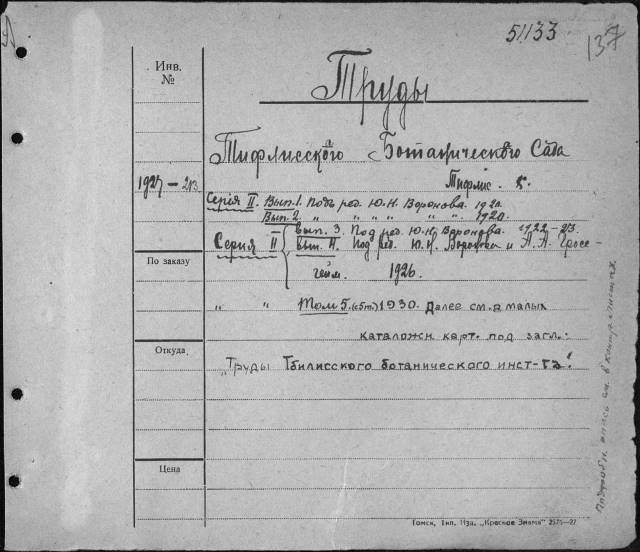 51133
137
Инв.
№
Труды
Тифлисского Ботанического Сада
Тифлис. 8.
1927 – 213
Серiя II. Вып. 1. Подъ ред. Ю.Н. Воронова. 1920.
Вып. 2. " " " " " " 1920.
Серия II вып. 3. Под ред. Ю.Н. Воронова. 1922–23.
вып. 4. Под ред. Ю.Н. Воронова и А.А. Гроссгейм. 1926.
По заказу
" " Том 5. (с5т) 1930. Далее см. в малых
каталожн карт. под загл.:
Откуда
"Труды Тбилисского ботанического инст-та".
Цена
Подробн. опись см. в контр. листах.
Томск, Тип. Изд. „Красное Знамя“ 2575—27